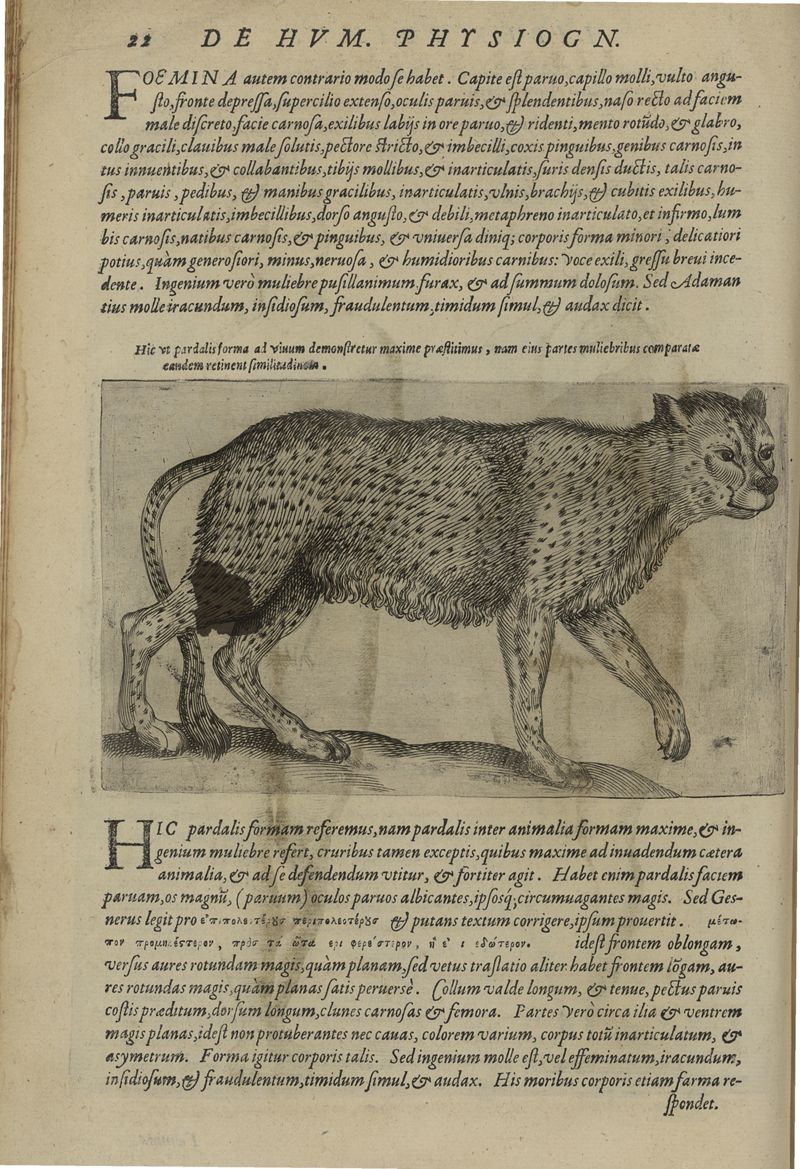 22 DE HVM. PHYSIOGN.
FOEMINA autem contrario modo ſe habet. Capite eſt paruo, capillo molli, vulto angu-
ſto, fronte depreſſa, ſupercilio extenſo, oculis paruis, & ſplendentibus, naſo recto ad faciem
male diſcreto, facie carnoſa, exilibus labijs in ore paruo, & ridenti, mento rotũdo, & glabro,
collo gracili, clauibus male ſolutis, pectore ſtricto, & imbecilli, coxis pinguibus, genibus carnoſis, in
tus innuentibus, & collabantibus, tibijs mollibus, & inarticulatis, ſuris denſis ductis, talis carno-
ſis, paruis, pedibus, & manibus gracilibus, inarticulatis, vlnis, brachijs, & cubitis exilibus, hu-
meris inarticulatis, imbecillibus, dorſo anguſto, & debili, metaphreno inarticulato, et infirmo, lum
bis carnoſis, natibus carnoſis, & pinguibus, & vniuerſa diniq; corporis forma minori, delicatiori
potius, quàm generoſiori, minus, neruoſa, & humidioribus carnibus: Voce exili, greſſu breui ince-
dente. Ingenium verò muliebre puſillanimum, furax, & ad ſummum doloſum. Sed Adaman
tius molle iracundum, inſidioſum, fraudulentum, timidum ſimul, & audax dicit.
Hic vt pardalis forma ad viuum demonſtretur maxime præſtitimus, nam eius partes muliebribus comparatæ
eandem retinent ſimilitudinem.
HIC pardalis formam referemus, nam pardalis inter animalia formam maxime, & in-
genium muliebre refert, cruribus tamen exceptis, quibus maxime ad inuadendum cætera
animalia, & ad ſe defendendum vtitur, & fortiter agit. Habet enim pardalis faciem
paruam, os magnũ, (paruum) oculos paruos albicantes, ipſosq; circumuagantes magis. Sed Geſ-
nerus legit pro περιπολεοτέρους & putans textum corrigere, ipſum prouertit. μέτω-
πον προμηκέστερον, πρὸς τὰ ὦτα idest frontem oblongam,
verſus aures rotundam magis, quàm planam, ſed vetus traſlatio aliter habet frontem lõgam, au-
res rotundas magis, quàm planas ſatis peruerſè. Collum valde longum, & tenue, pectus paruis
coſtis præditum, dorſum longum, clunes carnoſas & femora. Partes Verò circa ilia & ventrem
magis planas, ideſt non protuberantes nec cauas, colorem varium, corpus totũ inarticulatum, &
aſymetrum. Forma igitur corporis talis. Sed ingenium molle eſt, vel effeminatum, iracundum,
inſidioſum, & fraudulentum, timidum ſimul, & audax. His moribus corporis etiam farma re-
ſpondet.